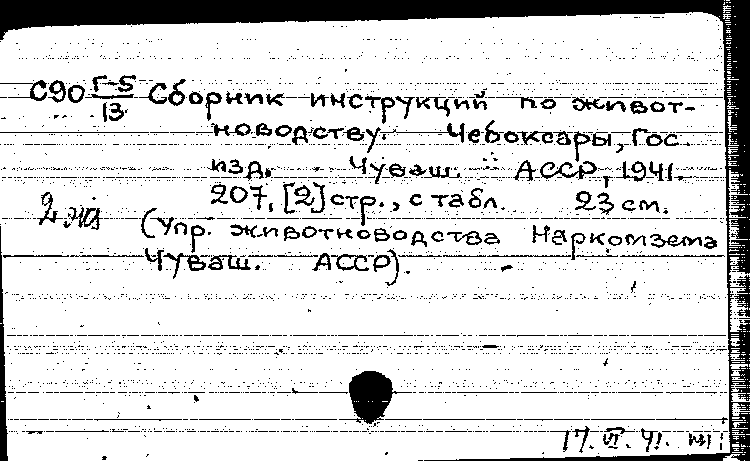 С90 Г-5/13 Сборник инструкций по живот-
новодству. Чебоксары, Гос.
изд. Чуваш. АССР, 1941.
207, [2] стр., с табл. 23 см.
2 экз
(Упр. животноводства Наркомзема
Чуваш. АССР).
17.VI.41.